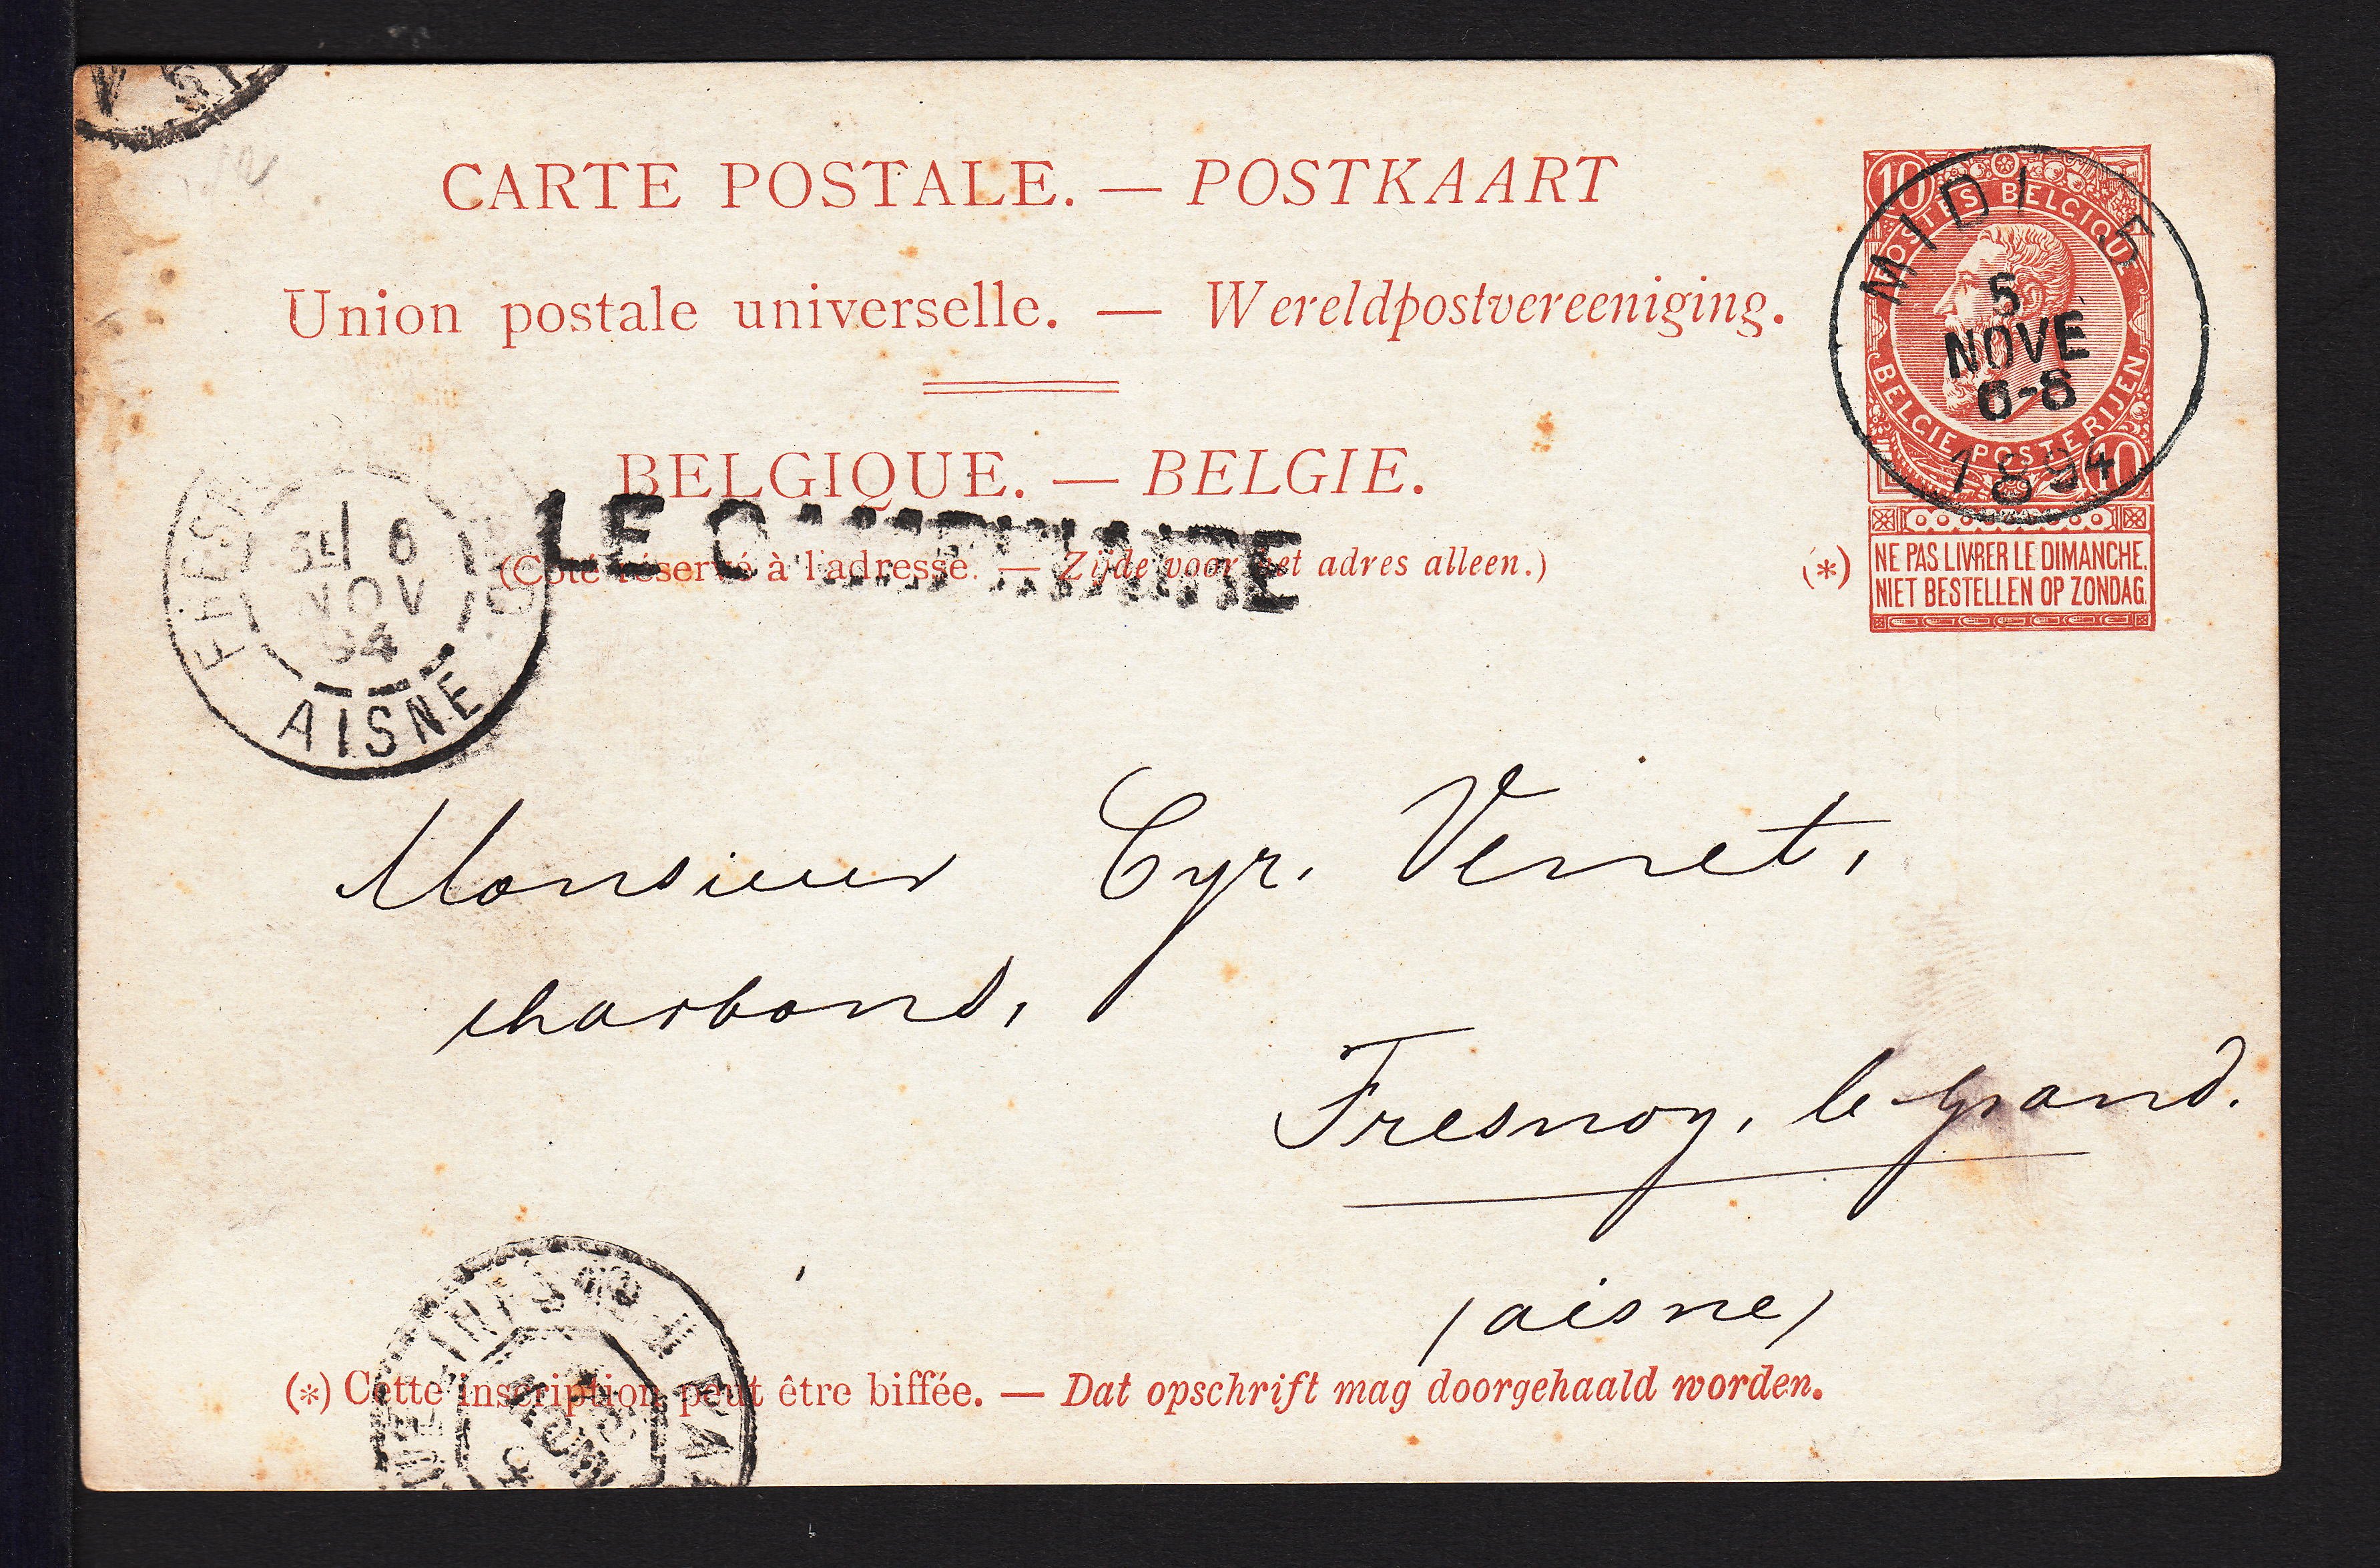 CARTE POSTALE. — POSTKAART
Union postale universelle. — Wereldpostvereeniging.
BELGIQUE. — BELGIE.
(Côté réservé à l'adresse. — Zijde voor het adres alleen.)
10
POSTES BELGIQUE
BELGIE POSTERIJEN
10
MIDI 5
5
NOVE
6-8
1894
(*)
NE PAS LIVRER LE DIMANCHE.
NIET BESTELLEN OP ZONDAG.
6
NOV
94
AISNE
LE
Monsieur Cyr. Verret,
charbons,
Fresnoy, le grand.
(aisne)
(*) Cette inscription peut être biffée. — Dat opschrift mag doorgehaald worden.